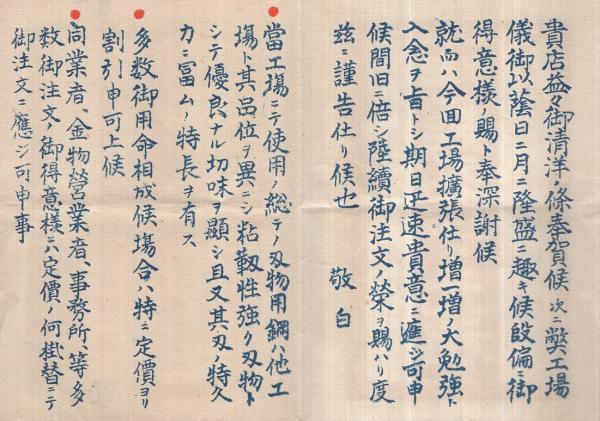 貴店益々御清洋ノ條奉賀候 次ニ弊工場
儀御以蔭日ニ月ニ隆盛ニ趣キ候段偏ニ御
得意様ノ賜ト奉深謝候
就而ハ今回工場擴張仕リ増一増ノ大勉強ト
入念ヲ旨トシ期日迅速貴意ニ應ジ可申
候間旧ニ倍シ陸續御注文ノ榮ヲ賜ハリ度
茲ニ謹告仕リ候也 敬白
當工場ニテ使用ノ総テノ刃物用鋼ハ他工
場ト其品位ヲ異ニシ粘靱性強ク刃物ト
シテ優良ナル切味ヲ顯シ且又其刃ノ特久
力ニ冨ムノ特長ヲ有ス
多数御用命相成候場合ハ特ニ定價ヨリ
割引申可上候
同業者、金物營業者、事務所、等多
数御注文ノ御得意様ニハ定價ノ何掛替ニテ
御注文ニ應ジ可申事